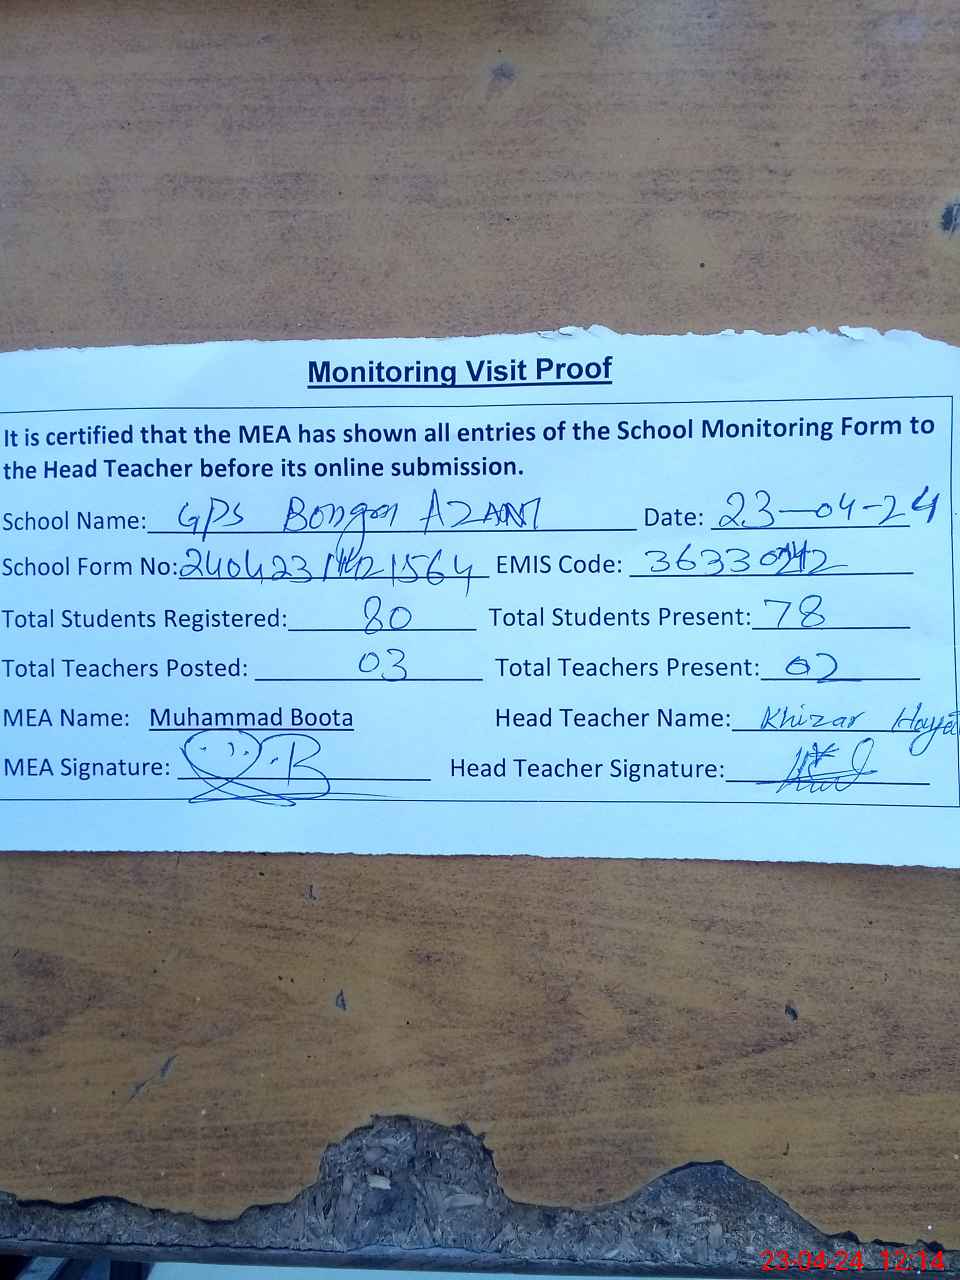 Monitoring Visit Proof
It is certified that the MEA has shown all entries of the School Monitoring Form to
the Head Teacher before its online submission.
School Name: GPS AZAM Date: 23-04-24
School Form No: EMIS Code:
Total Students Registered: 80 Total Students Present: 78
Total Teachers Posted: 03 Total Teachers Present: 02
MEA Name: Muhammad Boota Head Teacher Name: Khizar Hayat
MEA Signature: Head Teacher Signature:
23-04-24 12:14